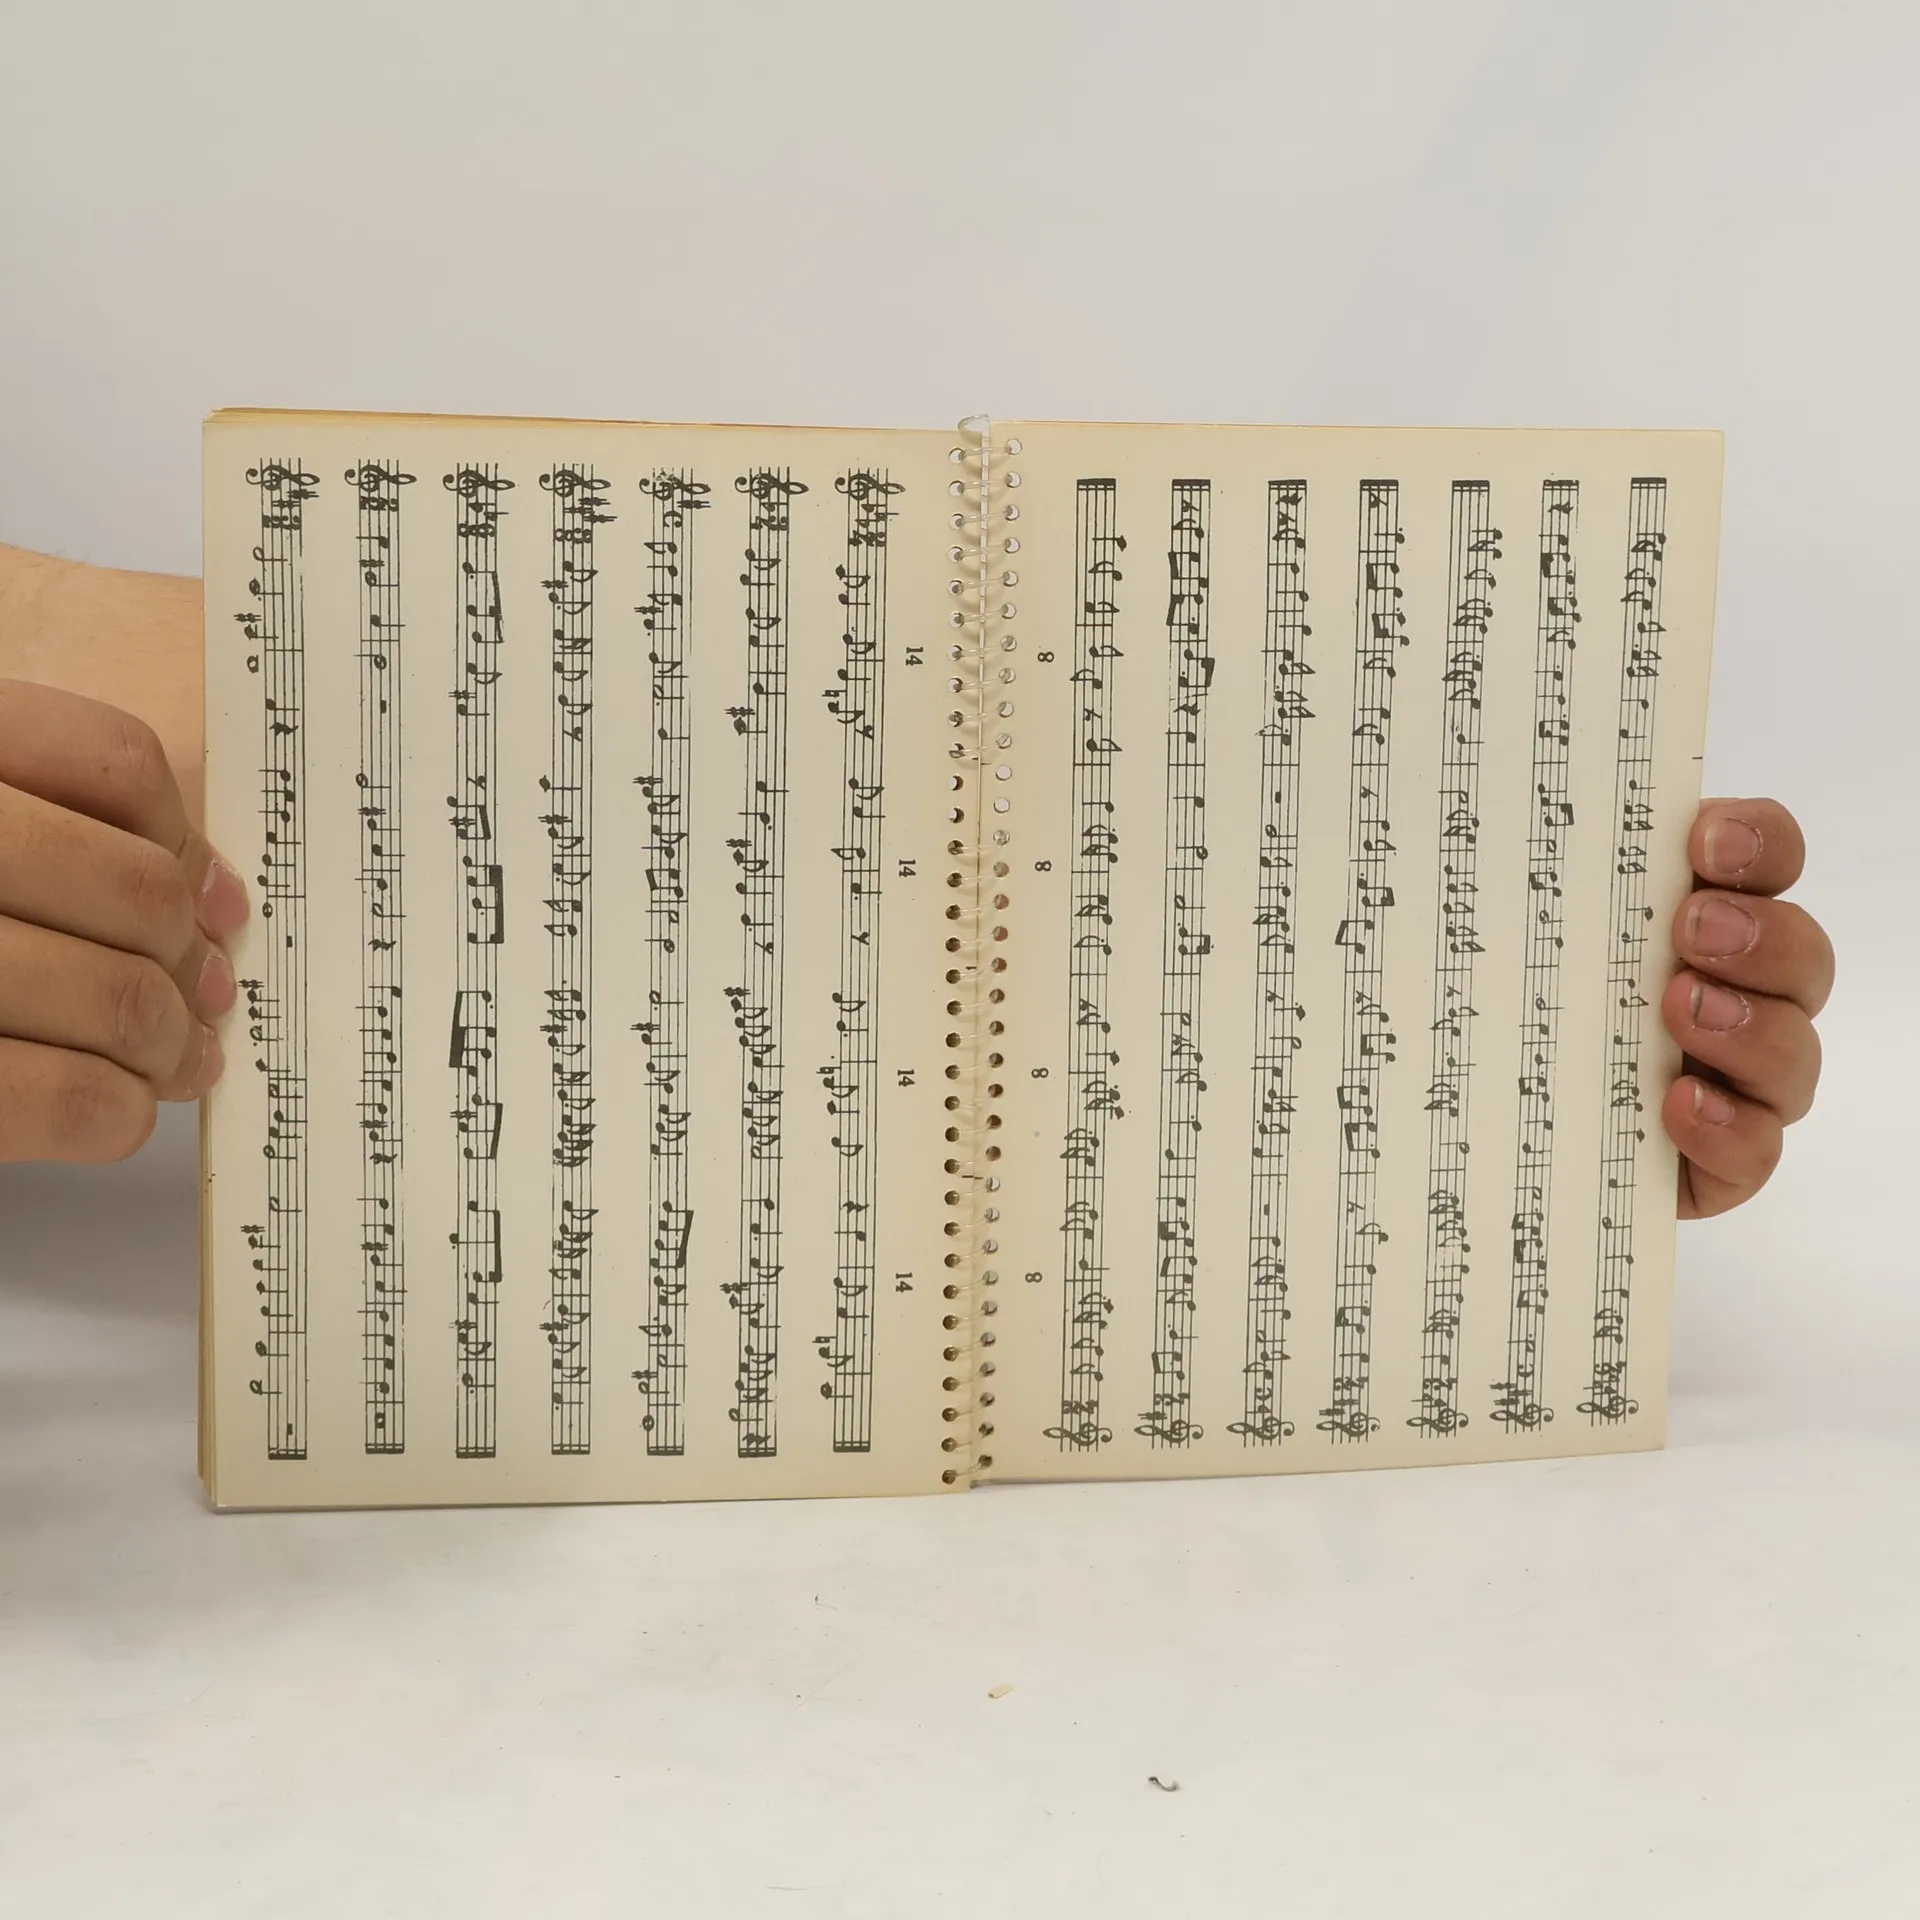 14
14
14
14
8
8
8
8